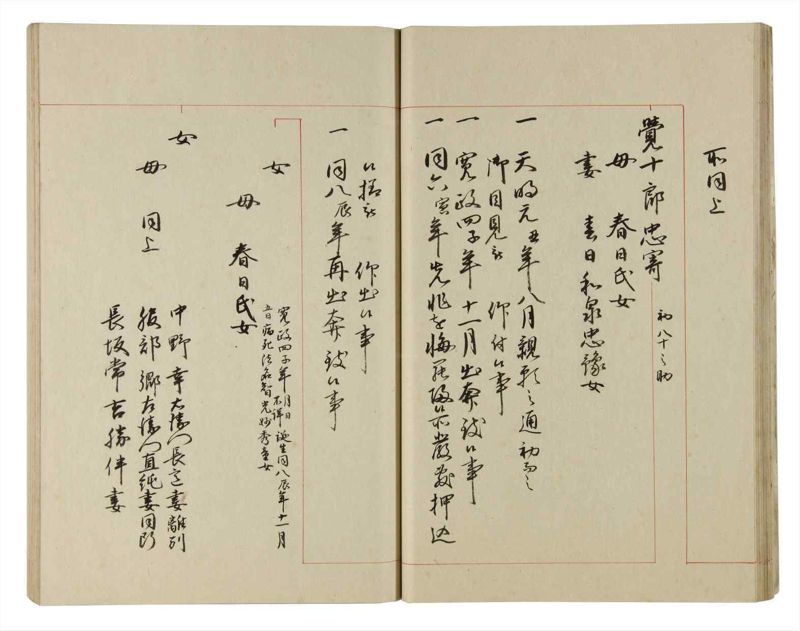 不同上
覺十郎忠寄
初八十之助
母 春日氏女
妻 春日和泉忠豫女
一 天明元丑年八月親類之通初而之
御目見被 仰付候事
一 寛政四子年十一月出奔致候事
一 同六寅年先非を悔罷帰候所嚴敷押込
被 仰出候事
一 同八辰年再出奔致候事
女
母 春日氏女
寛政四子年月日不詳誕生同八辰年十一月
五日病死法名智光妙秀童女
女
母 同上
中野幸右衛門長定妻離別
服部郷右衛門直純妻同断
長坂常吉勝伴妻